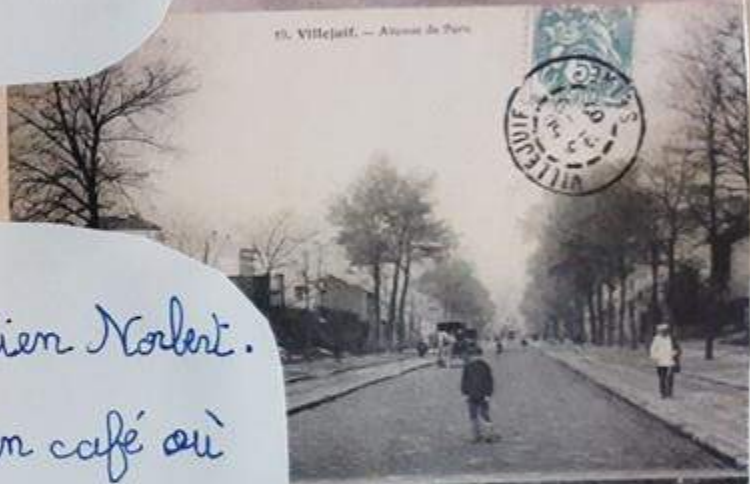 19. Villejuif. — Avenue de Paris
VILLEJUIF
SEINE
ien Norbert.
n café où